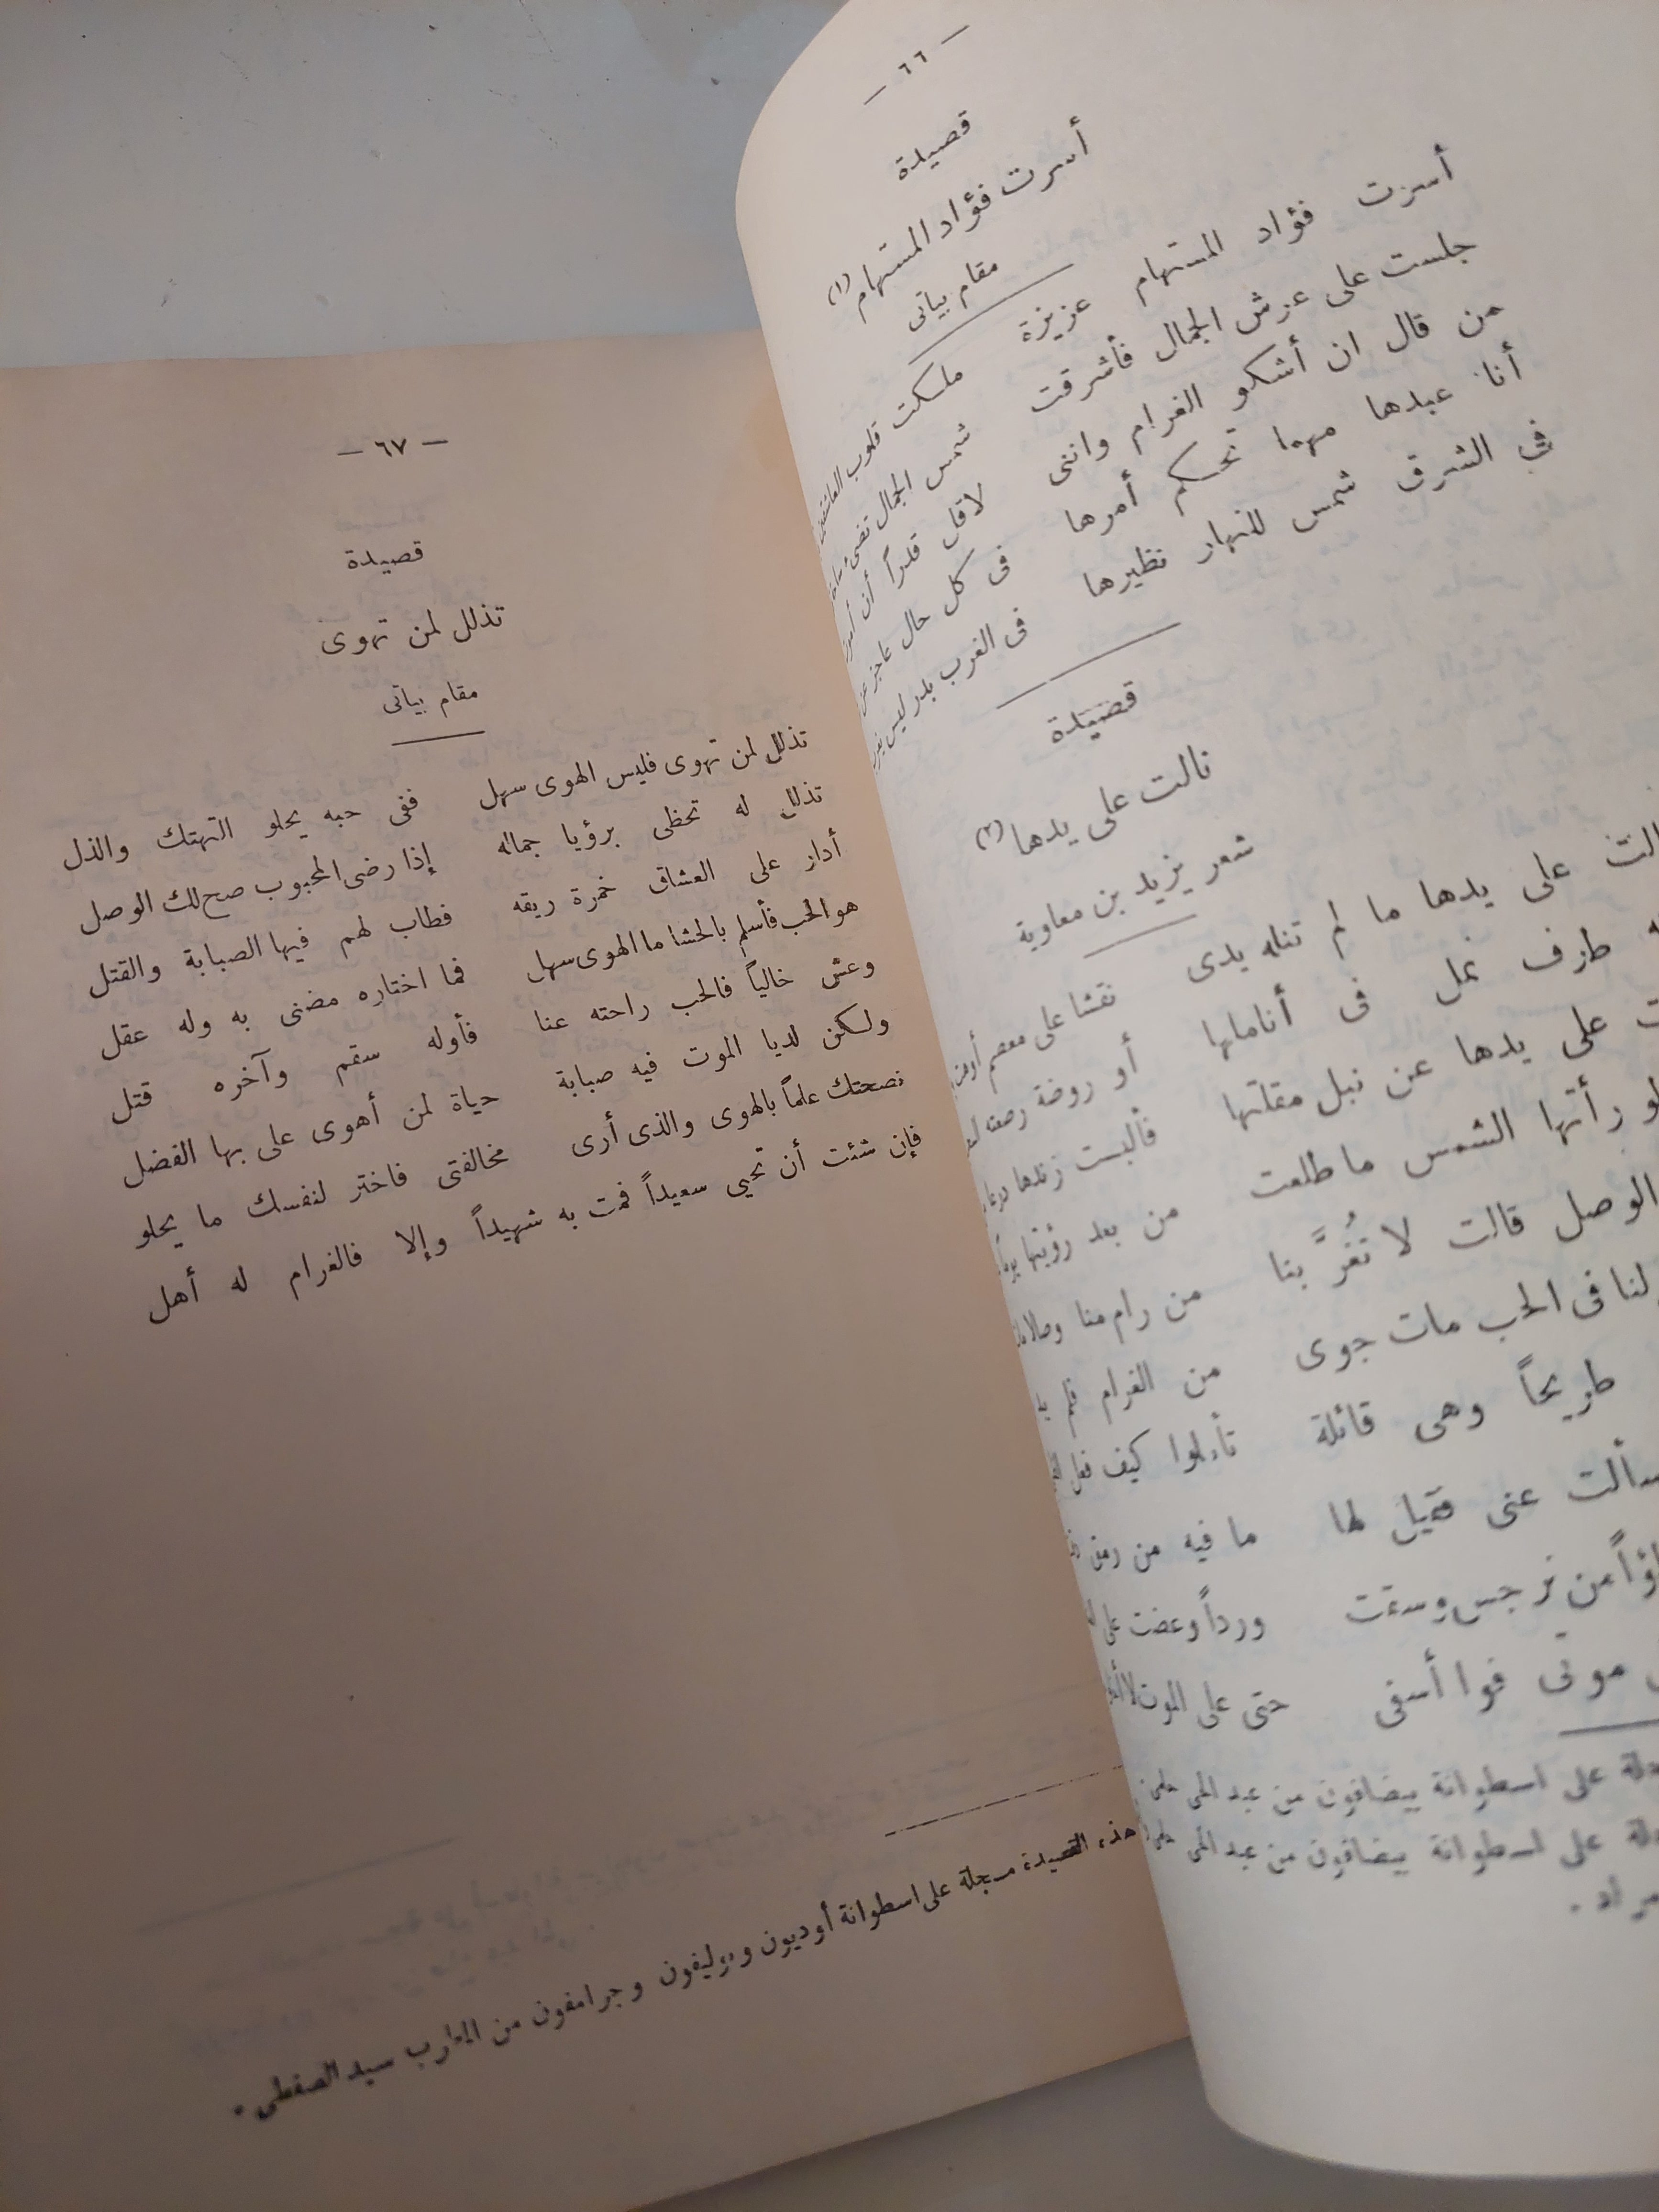 — ٦٦ —
قصيدة
أسرت فؤاد المستهام (١)
مقام بياتى
أسرت فؤاد المستهام عزيزة ملكت قلوب
جلست على عرش الجمال فأشرقت شمس الجمال تضىء
من قال ان أشكو الغرام واننى لاقل قدراً أن
أنا عبدها مهما تحكم أمرها فى كل حال عاجز
فى الشرق شمس للنهار نظيرها فى الغرب بدر ليس
قصيدة
نالت على يدها (٢)
شعر يزيد بن معاوية
على يدها ما لم تنله يدى نقشا على معصم
طرف نمل فى أناملها أو روضة
على يدها عن نبل مقلتها فألبست زندها
رأتها الشمس ما طلعت من بعد رؤيتها
الوصل قالت لا تَغُرَّ بنا من رام منا
لنا فى الحب مات جوى من الغرام فلم
طريحاً وهى قائلة تأملوا كيف فعل
عنى فقيل لها ما فيه من رمق
من نرجس وسقت ورداً وعضت على
موتى فوا أسفى حتى على الموت
على اسطوانة بيضافون من عبد الحى حلمى
على اسطوانة بيضافون من عبد الحى حلمى
— ٦٧ —
قصيدة
تذلل لمن تهوى
مقام بياتى
تذلل لمن تهوى فليس الهوى سهل ففى حبه يحلو التهتك والذل
تذلل له تحظى برؤيا جماله إذا رضى المحبوب صح لك الوصل
أدار على العشاق خمرة ريقه فطاب لهم فيها الصبابة والقتل
هو الحب فأسلم بالحشا ما الهوى سهل فما اختاره مضنى به وله عقل
وعش خالياً فالحب راحته عنا فأوله سقم وآخره قتل
ولكن لديا الموت فيه صبابة حياة لمن أهوى على بها الفضل
نصحتك علماً بالهوى والذى أرى مخالفتى فاختر لنفسك ما يحلو
فإن شئت أن تحيى سعيداً فمت به شهيداً وإلا فالغرام له أهل
هذه القصيدة مسجلة على اسطوانة أوديون وبوليفون وجرامفون من المطرب سيد الصفطى .